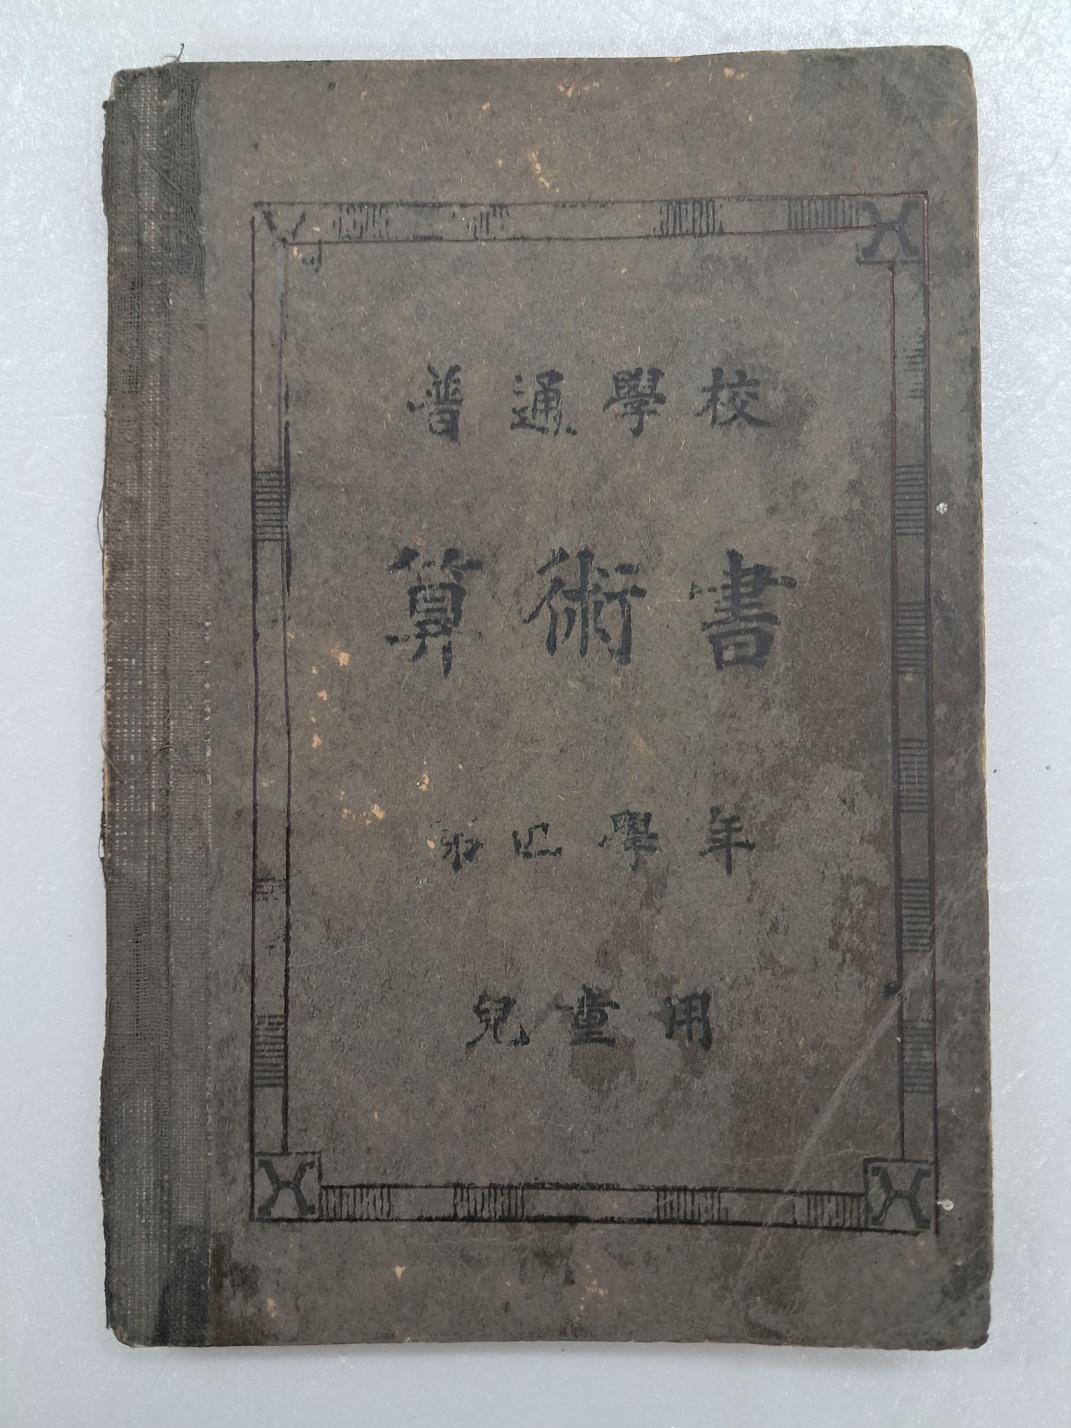 普通學校
算術書
第四學年
兒童用